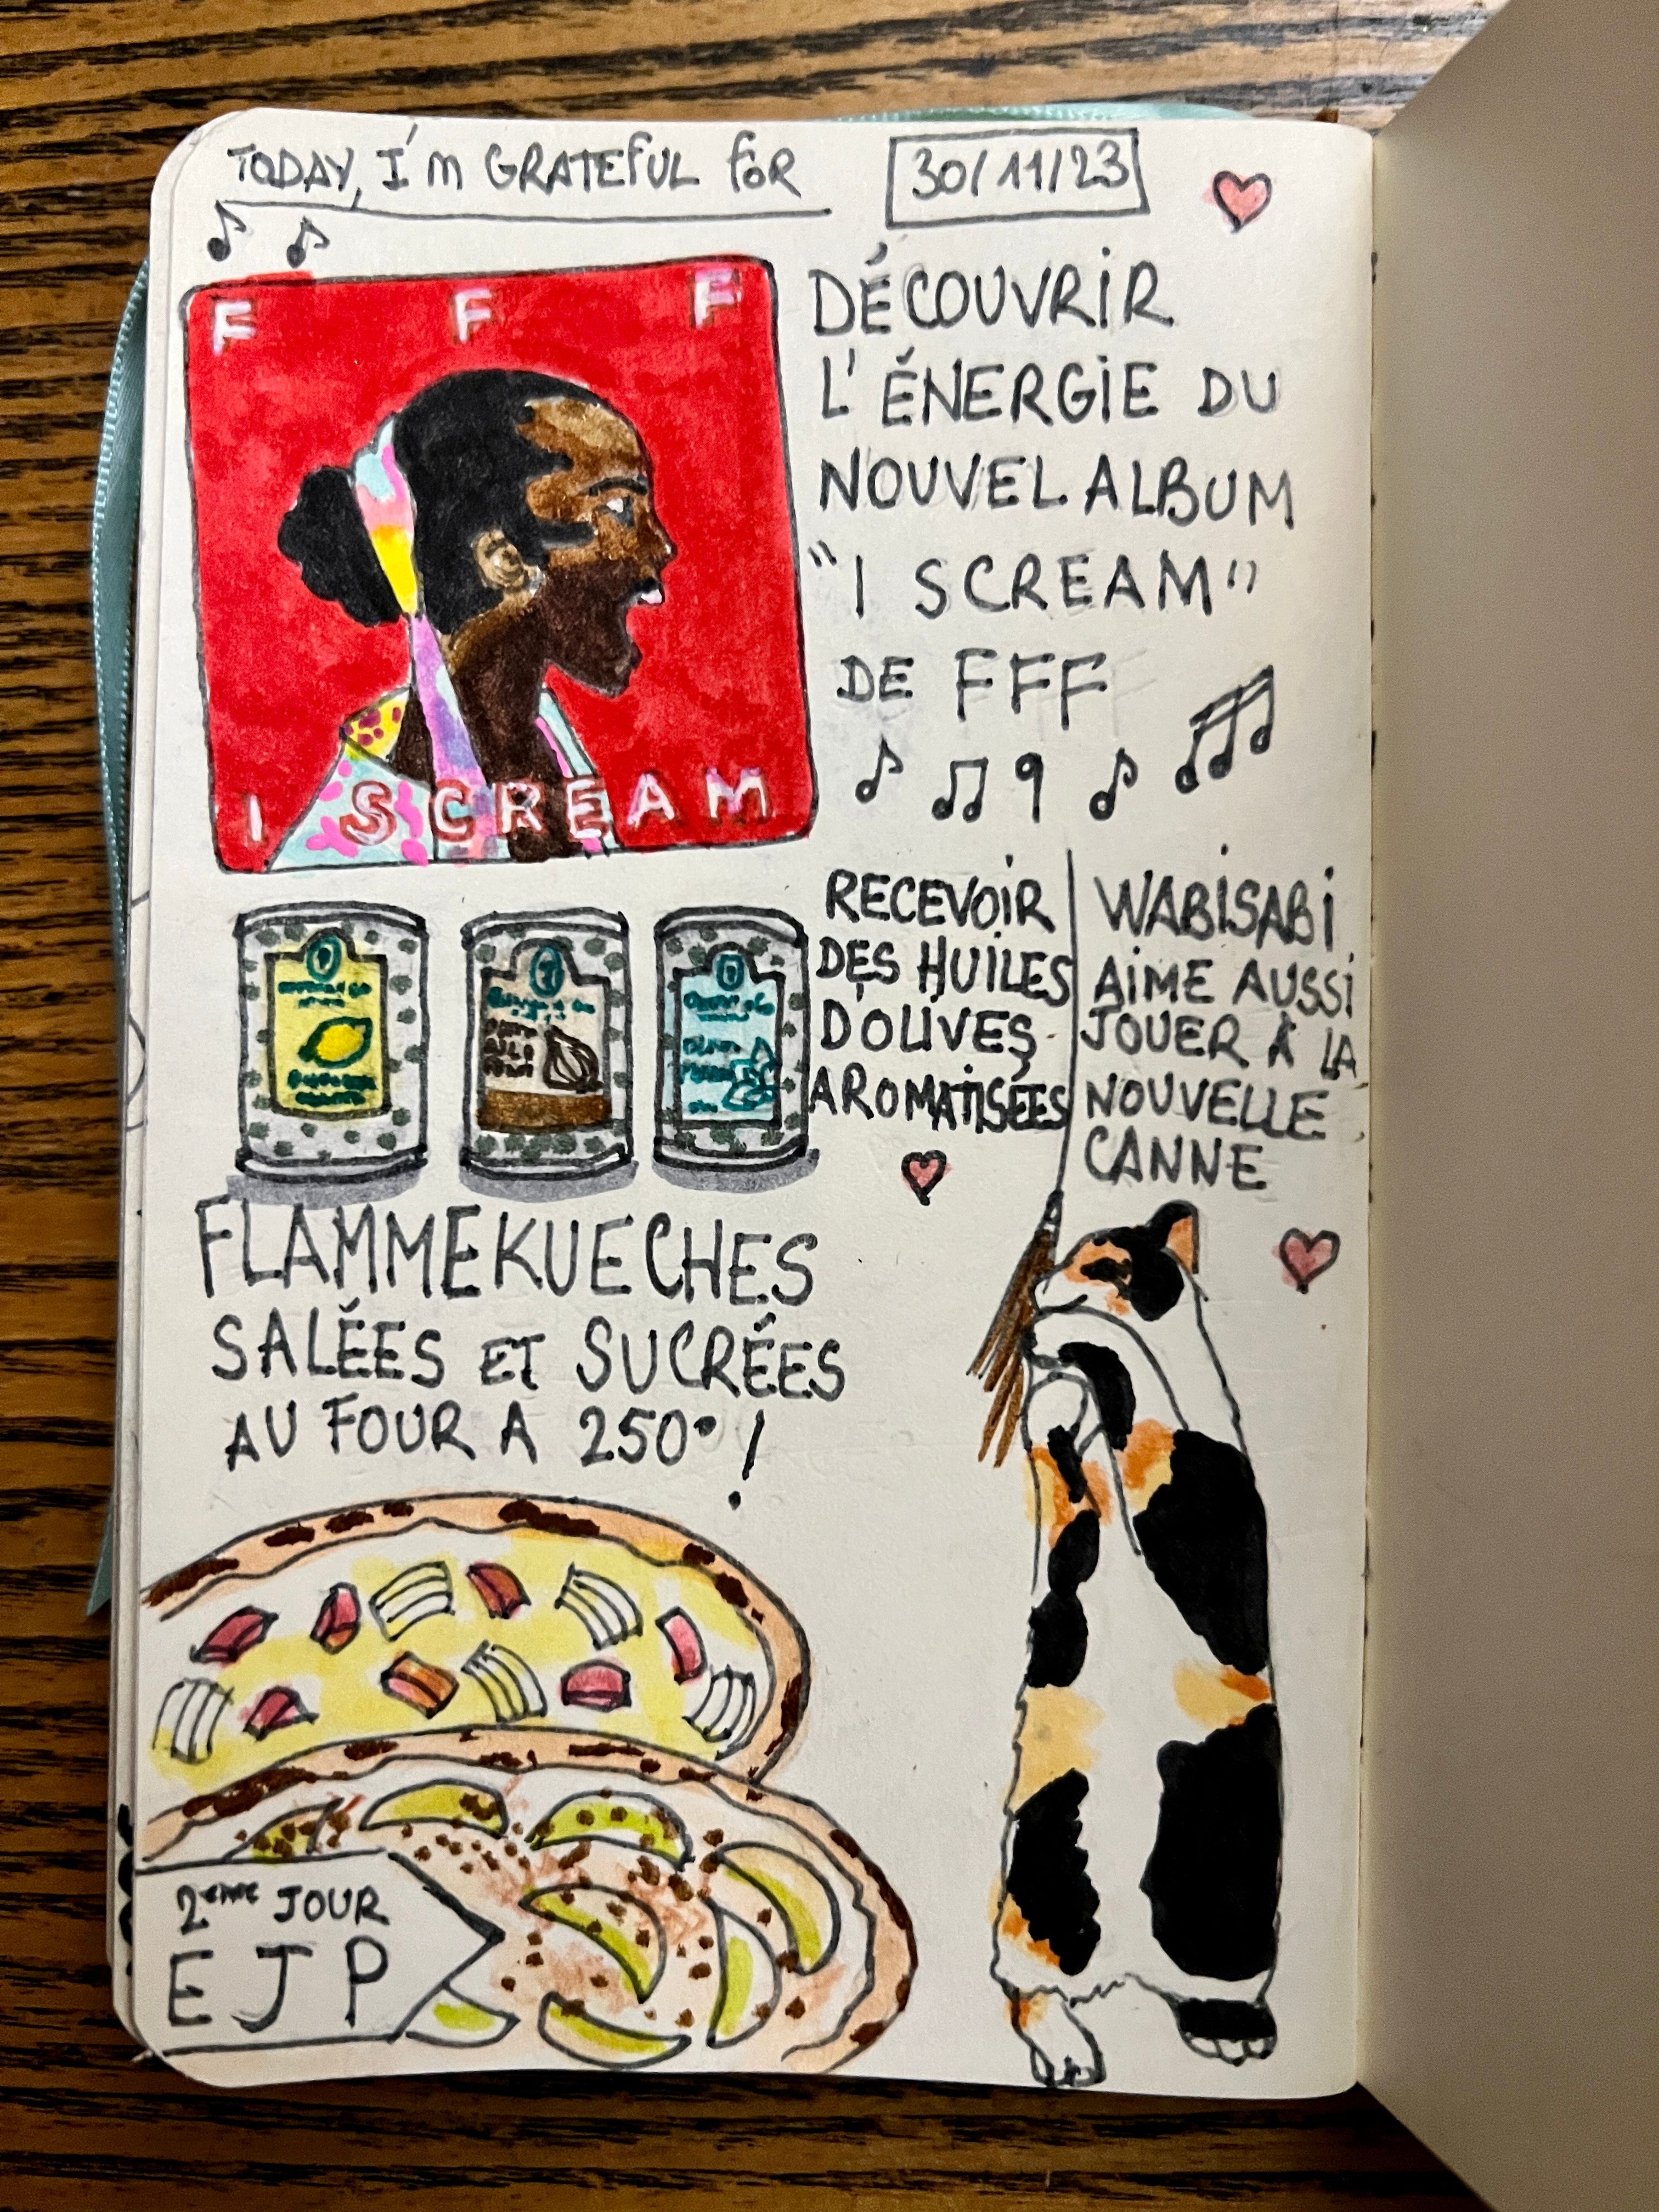 TODAY, I'm GRATEFUL FOR
30/11/23
F F F
I SCREAM
DÉCOUVRIR
L'ÉNERGIE DU
NOUVEL ALBUM
"I SCREAM"
DE FFF
RECEVOIR
DES HUILES
D'OLIVES
AROMATISÉES
WABISABI
AIME AUSSI
JOUER À LA
NOUVELLE
CANNE
FLAMMEKUECHES
SALÉES ET SUCRÉES
AU FOUR A 250° !
2ème JOUR
EJP